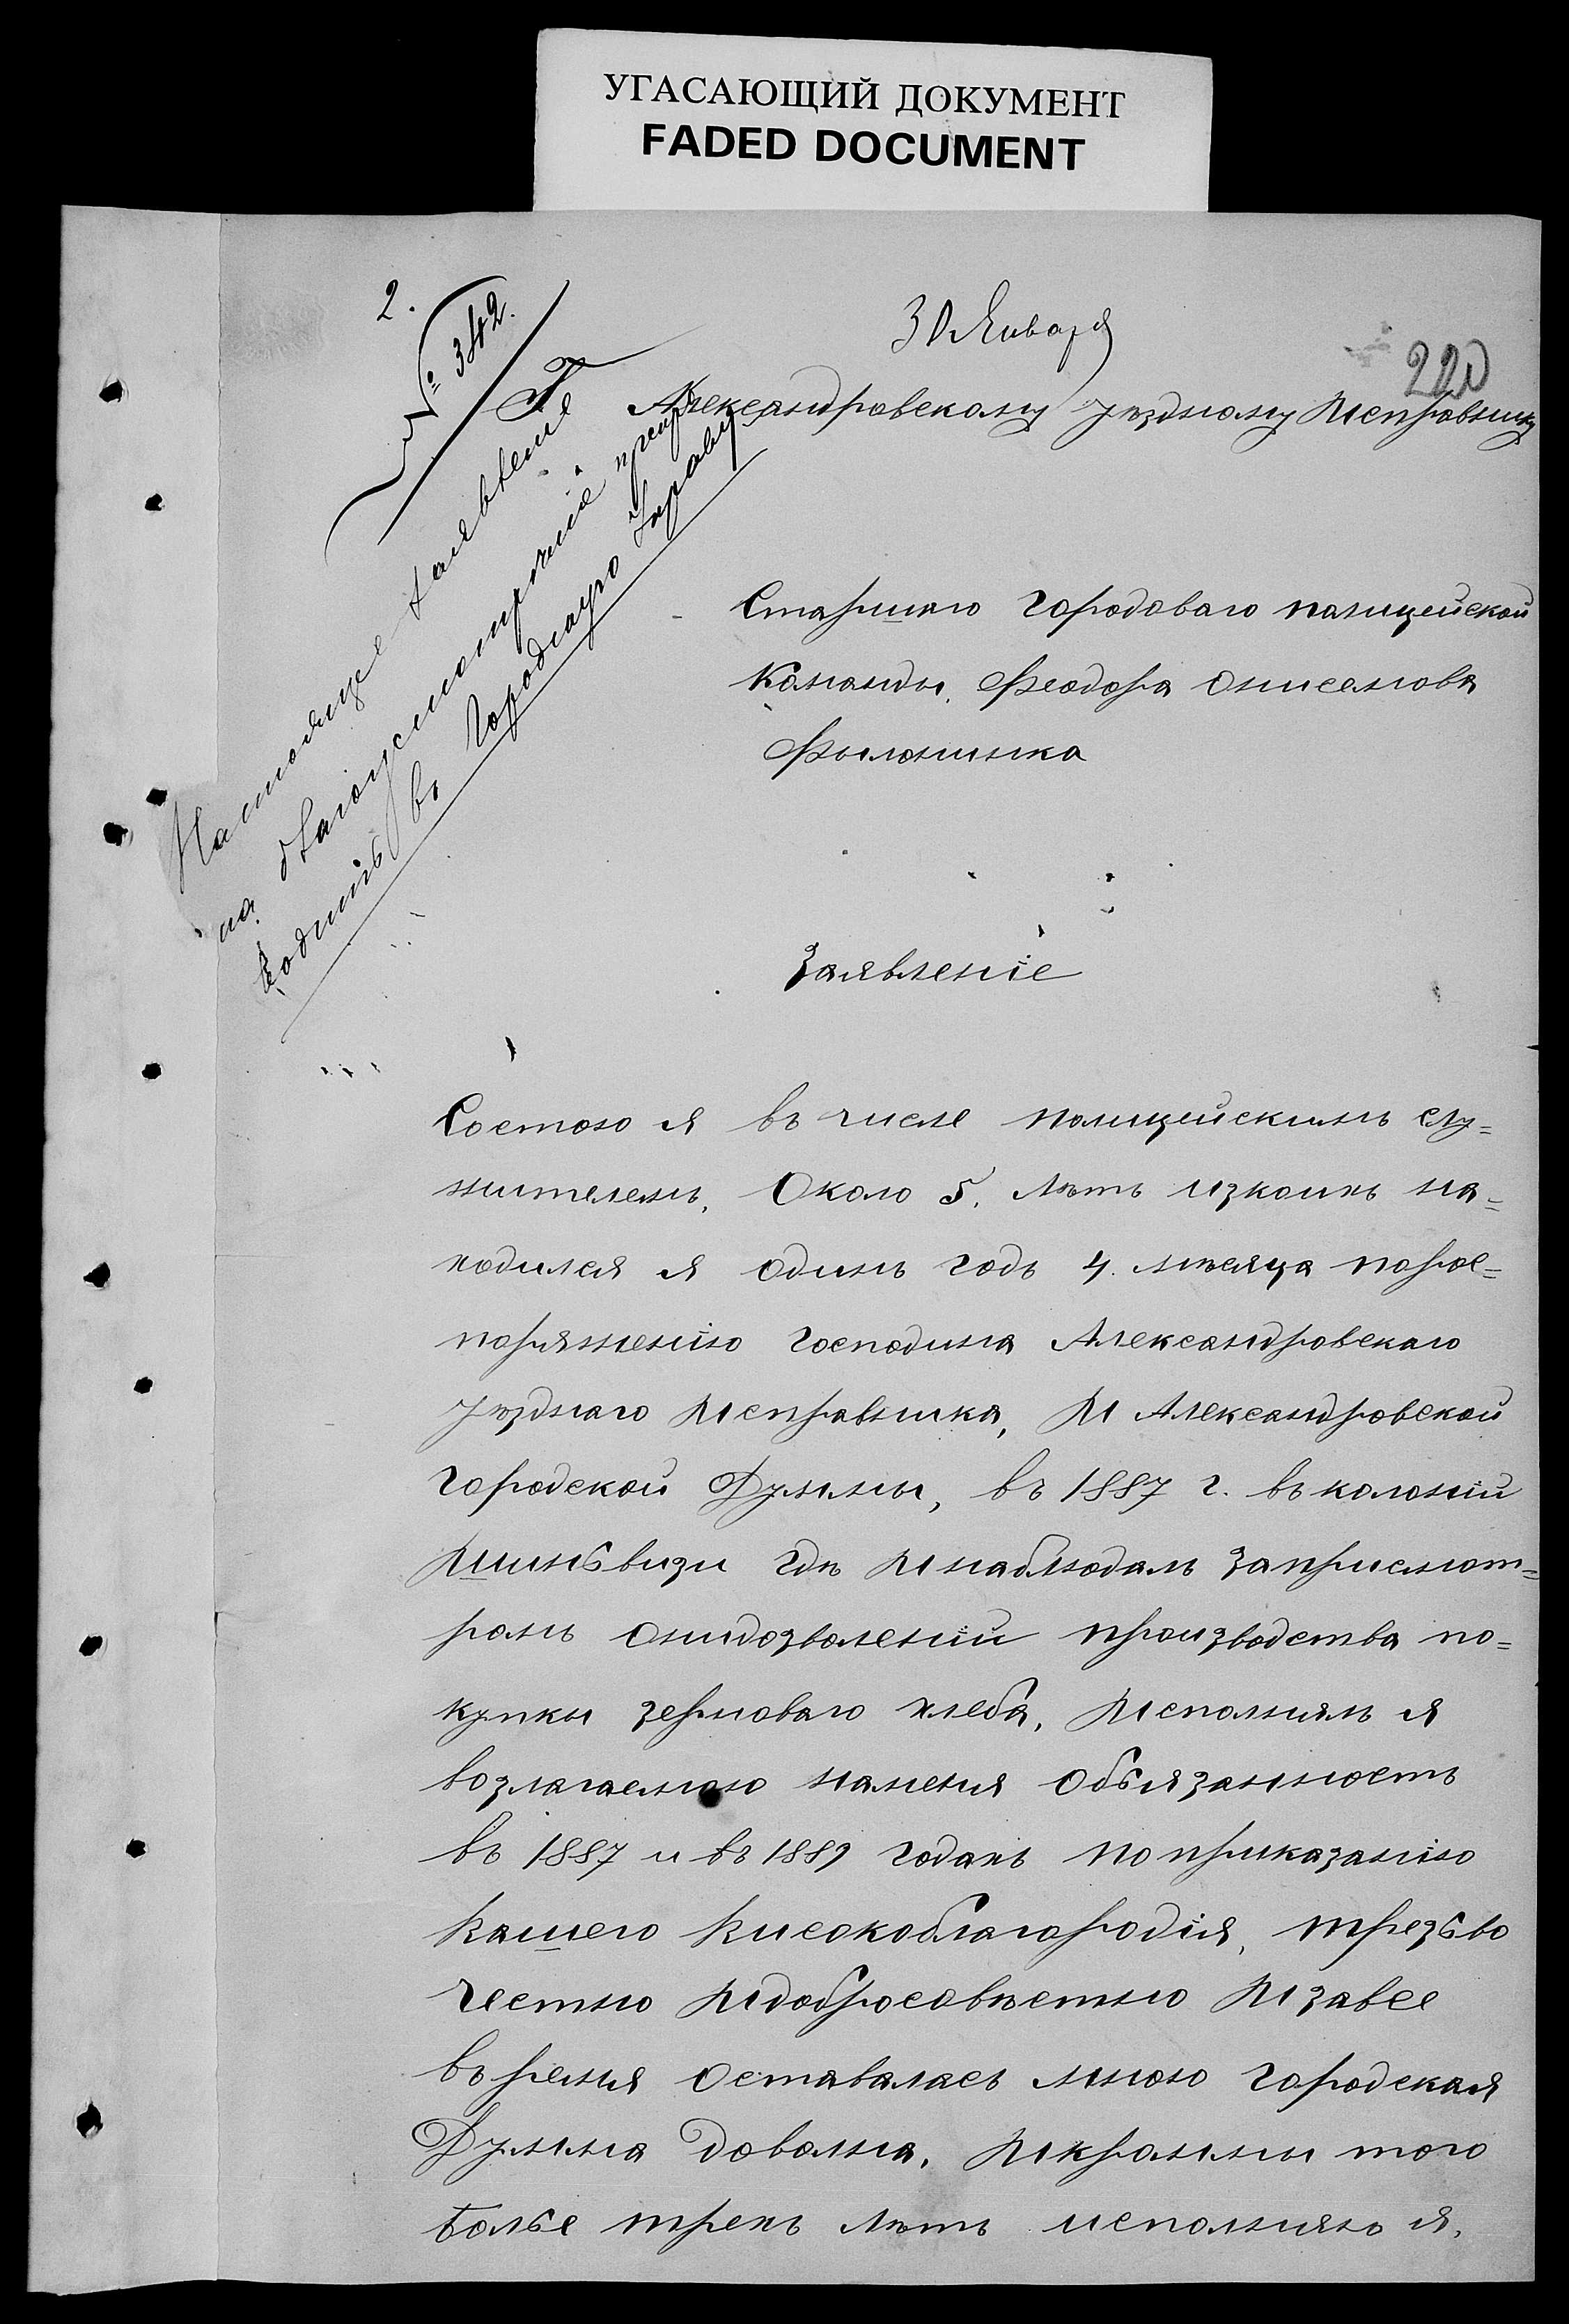 УГАСАЮЩИЙ ДОКУМЕНТ
FADED DOCUMENT
2.
№ 342.
30 Января
220
Г Александровскому уѣздному Исправнику
Настоящее заявленіе
на благоусмотрѣніе препро
водить въ Городскую Управу
Старшаго городоваго полицейской
Команды, Феодора Онисемова
Филонинка
Заявленіе
Состою я въ числе полицейскихъ слу=
жителехъ, Около 5. лѣтъ изкоихъ на=
ходился я одинъ годъ 4. мѣсяца порас=
поряженію Господина Александровскаго
уѣзднаго Исправника, И Александровской
городской Думмы, въ 1887 г. въ колоніи
Шиньвизи гдѣ И наблюдалъ заприсмот=
ромъ онидозволеніи производства по=
купки зерноваго хлеба, Исполнялъ я
возлагаемою наменя Обьязанность
въ 1887 и въ 1889 годахъ по приказанію
Вашего Високоблагородія, трезьво
честно Идобросовѣстно И завсе
въремя оставалась мною городская
Думма довольна, Икроммы того
Более трехъ лѣтъ исполняю я,